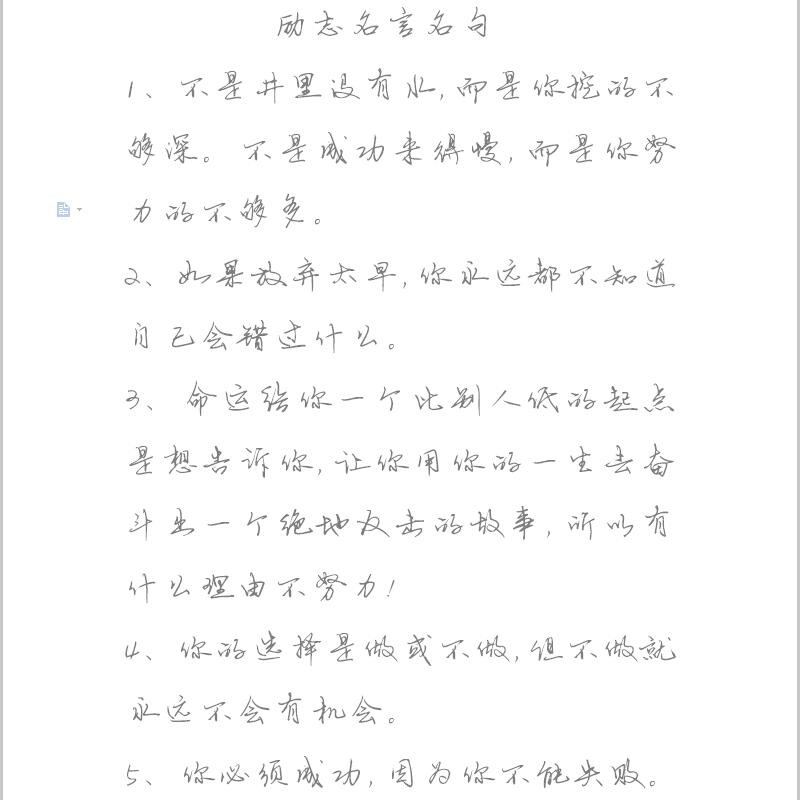 励志名言名句
1、不是井里没有水,而是你挖的不
够深。不是成功来得慢,而是你努
力的不够多。
2、如果放弃太早,你永远都不知道
自已会错过什么。
3、命运给你一个比别人低的起点
是想告诉你,让你用你的一生去奋
斗出一个绝地反击的故事,所以有
什么理由不努力!
4、你的选择是做或不做,但不做就
永远不会有机会。
5、你必须成功,因为你不能失败。